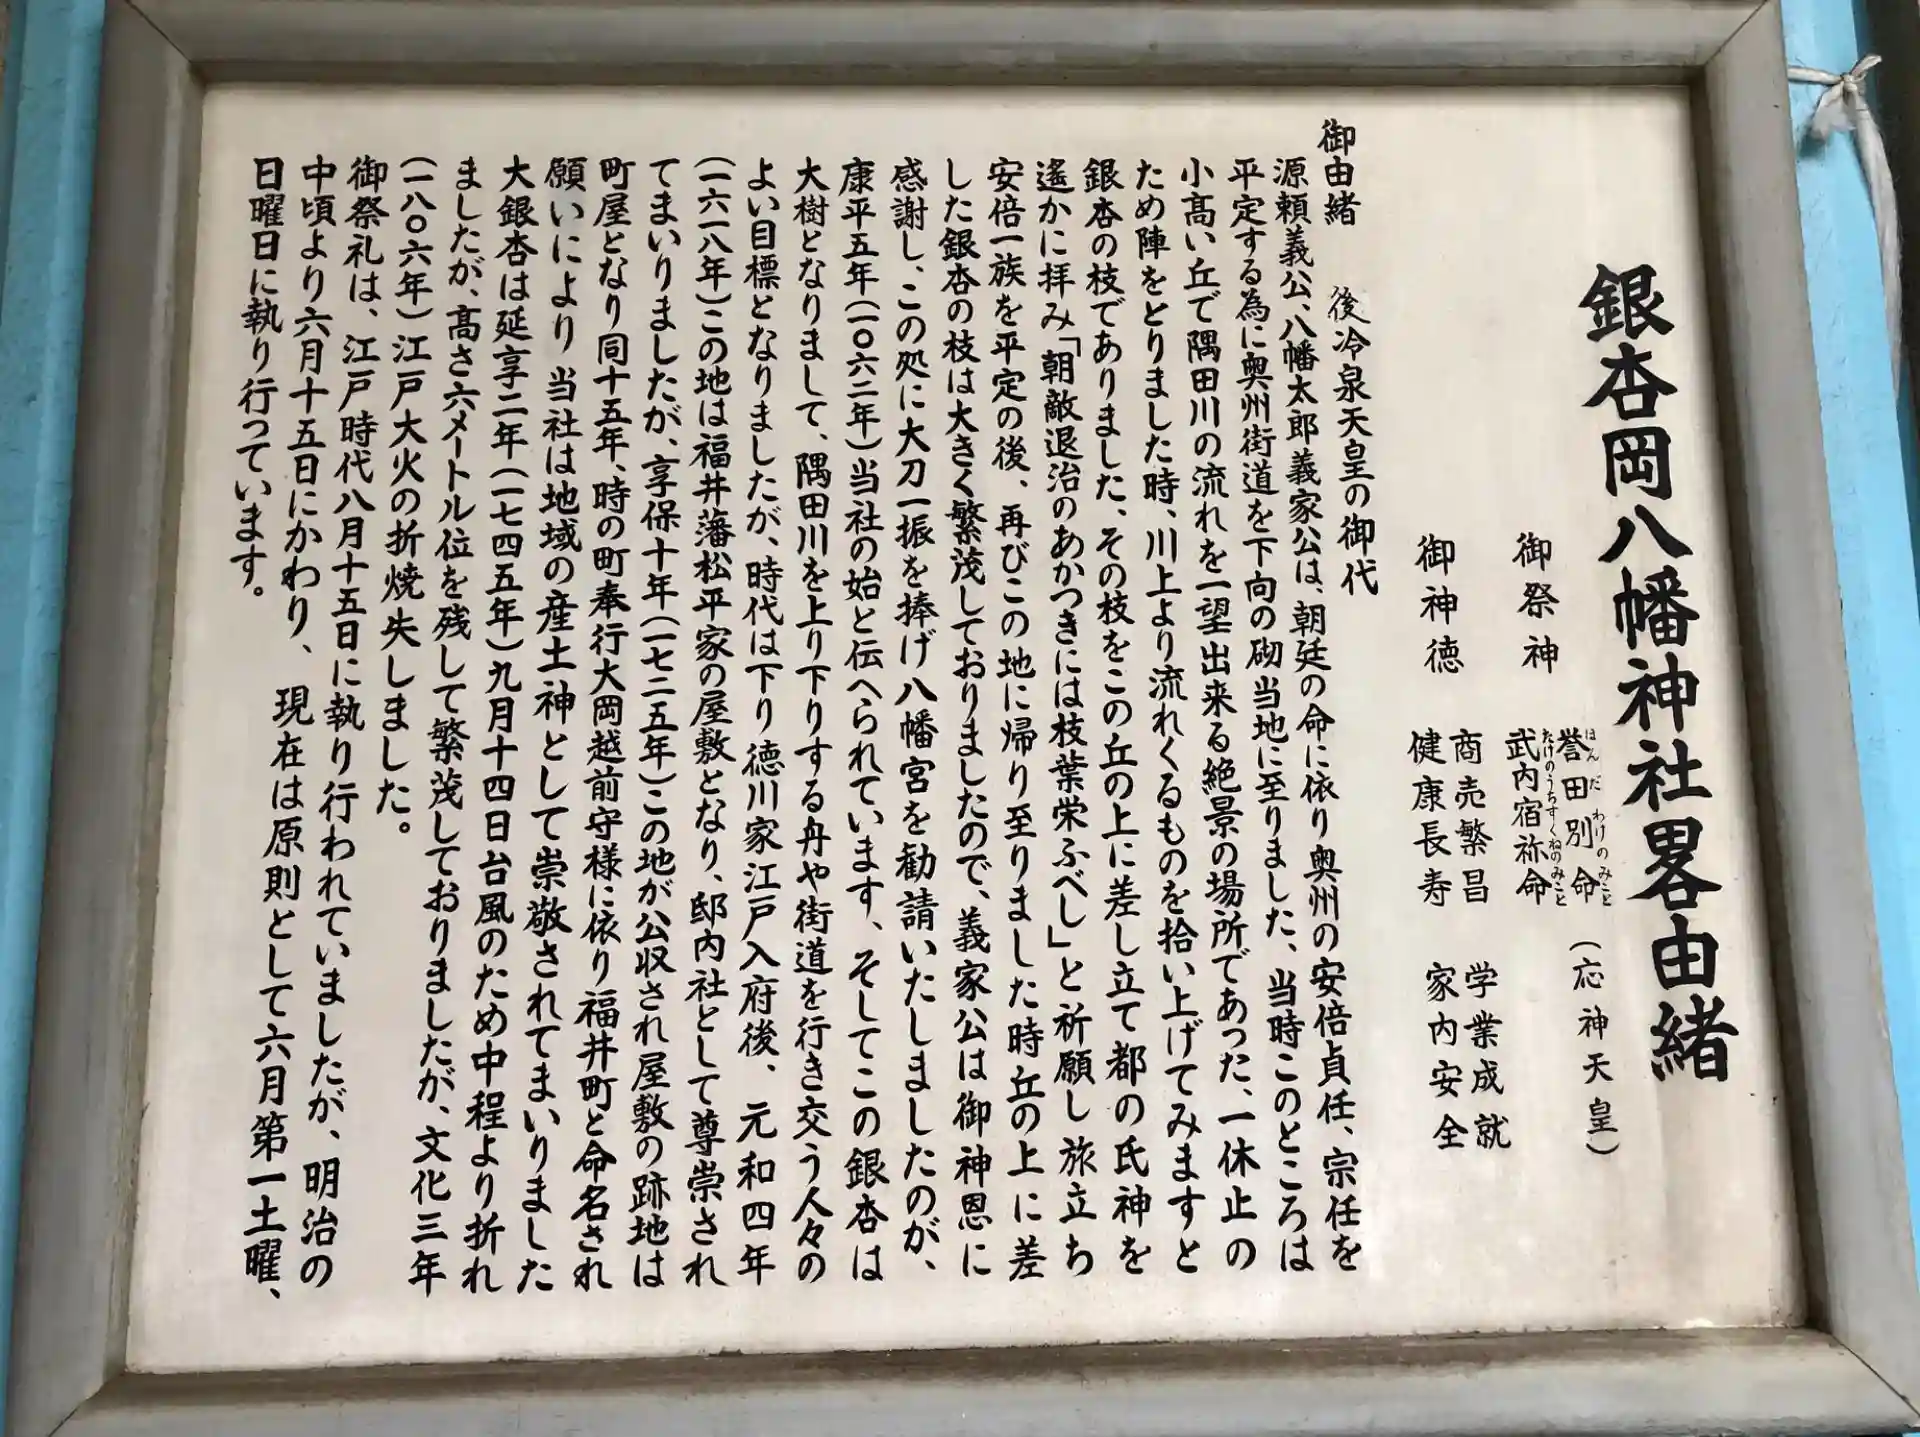 銀杏岡八幡神社畧由緒
御祭神
誉田別命（応神天皇）
ほんだわけのみこと
武内宿祢命
たけのうちすくねのみこと
御神徳
商売繁昌 学業成就
健康長寿 家内安全
御由緒 後冷泉天皇の御代
源頼義公、八幡太郎義家公は、朝廷の命に依り奥州の安倍貞任、宗任を
平定する為に奥州街道を下向の砌当地に至りました、当時このところは
小高い丘で隅田川の流れを一望出来る絶景の場所であった、一休止の
ため陣をとりました時、川上より流れくるものを拾い上げてみますと
銀杏の枝でありました、その枝をこの丘の上に差し立て都の氏神を
遙かに拝み「朝敵退治のあかつきには枝葉栄ふべし」と祈願し旅立ち
安倍一族を平定の後、再びこの地に帰り至りました時丘の上に差
した銀杏の枝は大きく繁茂しておりましたので、義家公は御神恩に
感謝し、この処に大刀一振を捧げ八幡宮を勧請いたしましたのが、
康平五年（一〇六二年）当社の始と伝へられています、そしてこの銀杏は
大樹となりまして、隅田川を上り下りする舟や街道を行き交う人々の
よい目標となりましたが、時代は下り徳川家江戸入府後、元和四年
（一六一八年）この地は福井藩松平家の屋敷となり、邸内社として尊崇され
てまいりましたが、享保十年（一七二五年）この地が公収され屋敷の跡地は
町屋となり同十五年、時の町奉行大岡越前守様に依り福井町と命名され
願いにより当社は地域の産土神として崇敬されてまいりました
大銀杏は延享二年（一七四五年）九月十四日台風のため中程より折れ
ましたが、高さ六メートル位を残して繁茂しておりましたが、文化三年
（一八〇六年）江戸大火の折焼失しました。
御祭礼は、江戸時代八月十五日に執り行われていましたが、明治の
中頃より六月十五日にかわり、現在は原則として六月第一土曜、
日曜日に執り行っています。